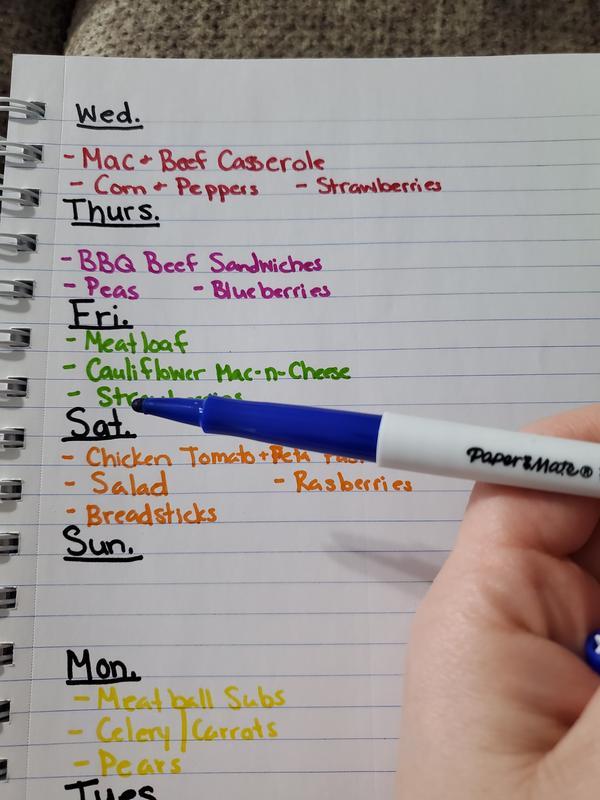 Wed.
- Mac + Beef Casserole
- Corn + Peppers - Strawberries
Thurs.
- BBQ Beef Sandwiches
- Peas - Blueberries
Fri.
- Meatloaf
- Cauliflower Mac-n-Cheese
-
Sat.
- Chicken Tomato + Feta
PaperMate®
- Salad - Rasberries
- Breadsticks
Sun.
Mon.
- Meatball Subs
- Celery | Carrots
- Pears
Tues